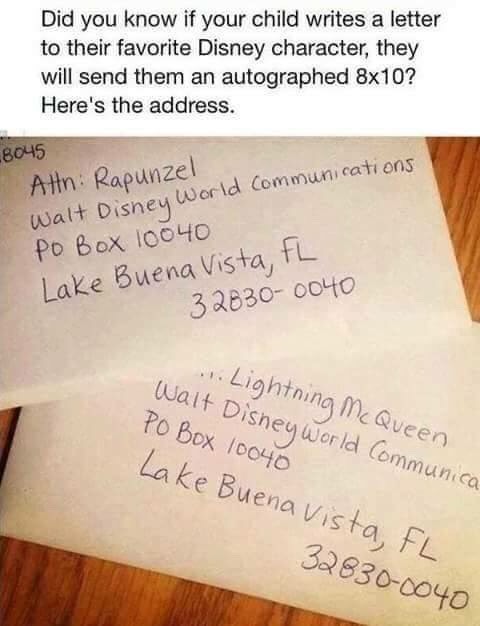 Did you know if your child writes a letter
to their favorite Disney character, they
will send them an autographed 8x10?
Here's the address.
8045
Attn: Rapunzel
Walt Disney World Communications
PO Box 10040
Lake Buena Vista, FL
32830-0040
Lightning McQueen
Walt Disney World Communica
PO Box 10040
Lake Buena Vista, FL
32830-0040